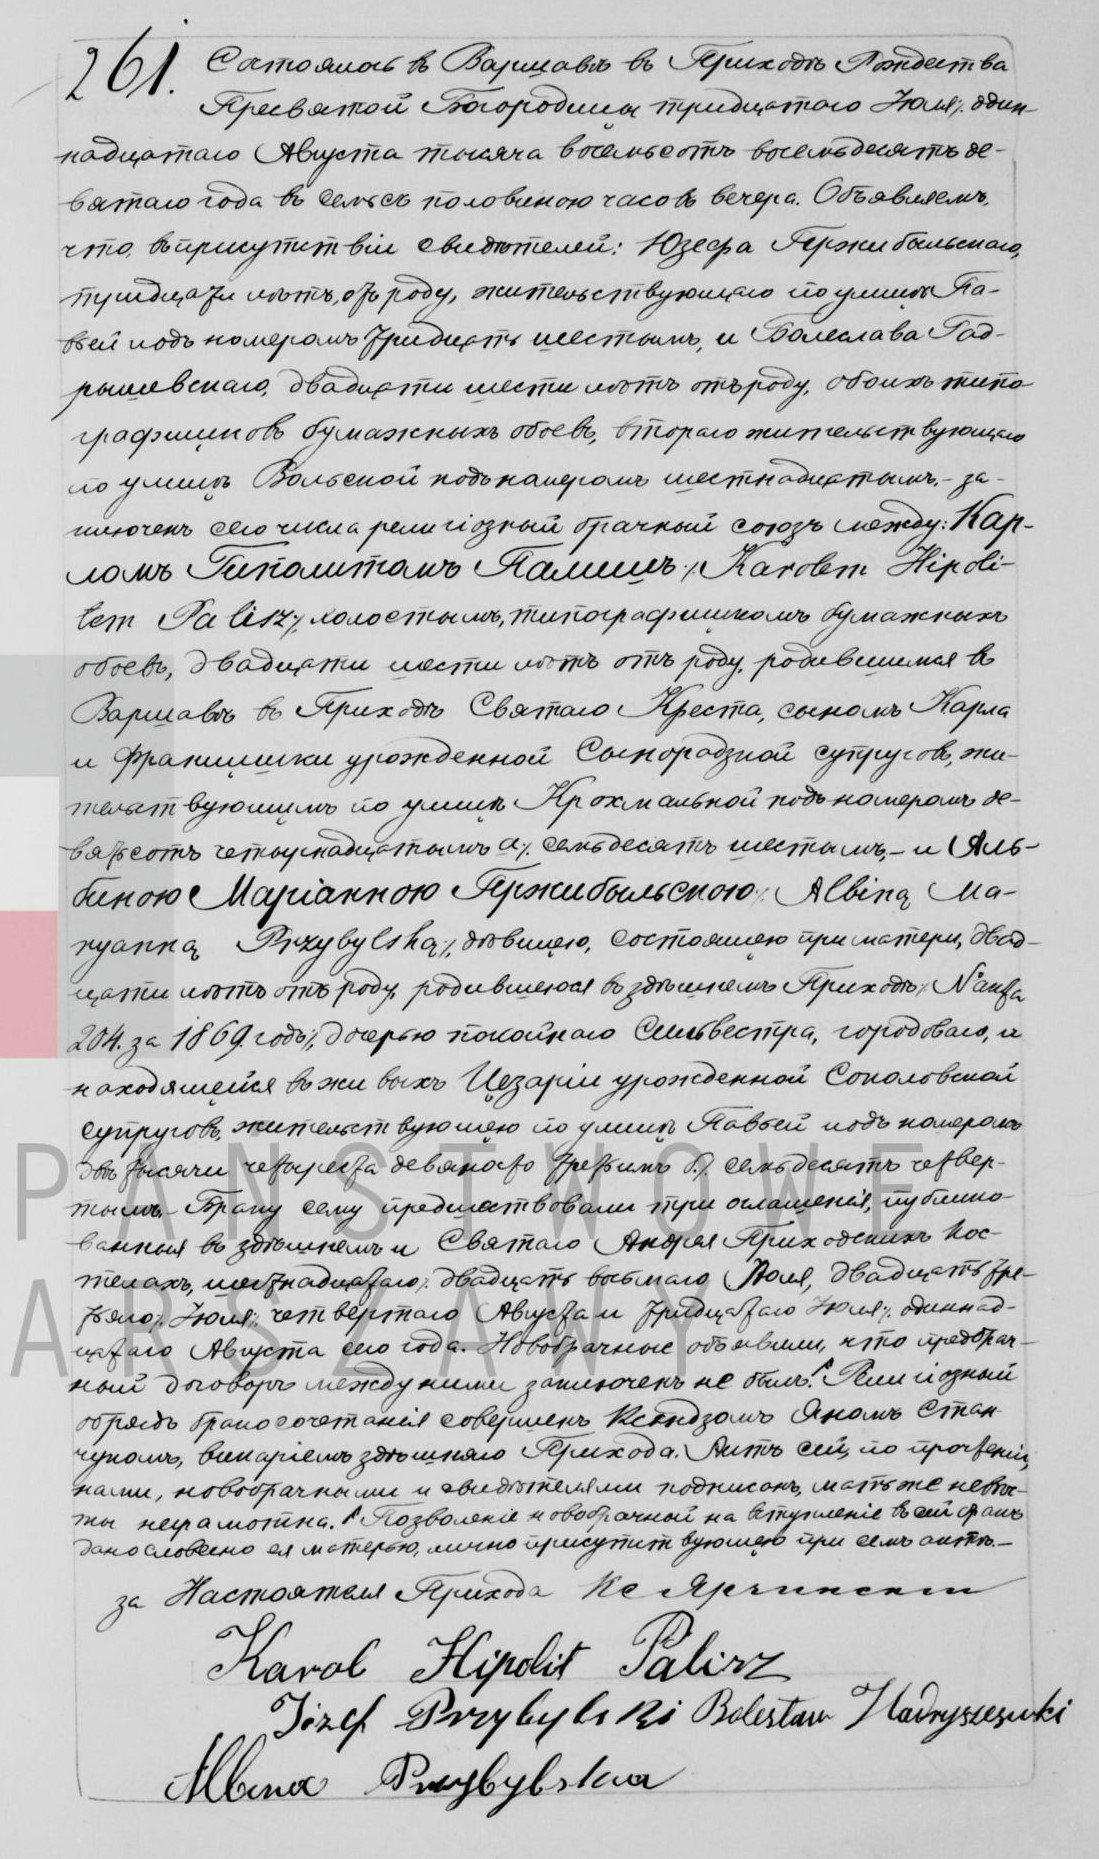 261.
Состоялось въ Варшавѣ въ Приходѣ Рождества
Пресвятой Богородицы тридцатаго Іюля /. один-
надцатаго Августа тысяча восемьсотъ восемьдесятъ де-
вятаго года въ семь съ половиною часовъ вечера. Объявляемъ,
что, въ присутствіи свидѣтелей: Юзефа Пржибыльскаго,
тридцати лѣтъ, отъ роду, жительствующаго по улицѣ Па-
вьей подъ номеромъ тридцать шестымъ, и Болеслава Гад-
рышевскаго, двадцати шести лѣтъ отъ роду, обоихъ типо
графщиковъ бумажныхъ обоевъ, втораго жительствующаго
по улицѣ Вольской подъ номеромъ шестнадцатымъ, - за-
ключенъ сего числа религіозный брачный союзъ между: Кар-
ломъ Гиполитомъ Палишъ /. Karolem Hipoli-
tem Palisz /. холостымъ, типографщикомъ бумажныхъ
обоевъ, двадцати шести лѣтъ отъ роду, родившимся въ
Варшавѣ въ Приходѣ Святаго Креста, сыномъ Карла
и Францишки урожденной Сынорадзкой супруговъ, жи-
тельствующимъ по улицѣ Крохмальной подъ номеромъ де-
вятьсотъ четырнадцатымъ а /. семьдесятъ шестымъ, - и Аль-
биною Маріанною Пржибыльскою /. Albiną Ma-
ryanną Przybylską /. дѣвицею, состоящею при матери, двад-
цати лѣтъ отъ роду, родившеюся въ здѣшнемъ Приходѣ /. № акта
204. за 1869. годъ /. дочерью покойнаго Сильвестра, городоваго, и
находящейся въ живыхъ Цезаріи урожденной Соколовской
супруговъ, жительствующею по улицѣ Павьей подъ номеромъ
двѣ тысячи четыреста девяносто третьимъ б. /. семьдесятъ четвер-
тымъ. - Браку сему предшествовали три оглашенія, публико-
ванныя въ здѣшнемъ и Святаго Андрея Приходскихъ Кос-
телахъ, шестнадцатаго /. двадцать восьмаго Іюля, двадцать тре-
тьяго /. Іюля /. четвертаго Августа и тридцатаго Іюля /. одиннад-
цатаго Августа сего года. Новобрачные объявили, что предбрач-
ный договоръ между ними заключенъ не былъ. Религіозный
обрядъ бракосочетанія совершенъ Ксендзомъ Яномъ Стан
чукомъ, викаріемъ здѣшняго Прихода. Актъ сей, по прочтеніи,
нами, новобрачными и свидѣтелями подписанъ, мать же невѣс-
ты неграмотна. Позволеніе новобрачной на вступленіе въ сей бракъ
дано словесно ея матерью, лично присутствующею при семъ актѣ. -
за Настоятеля Прихода Кс
Karol Hipolit Palisz
Józef Przybylski Bolesław Hadryszewski
Albina Przybylska
PAŃSTWOWE
ARSZAWY